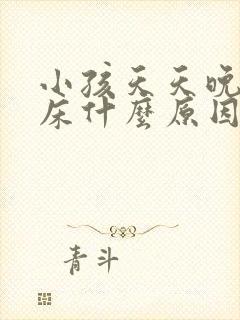 小孩天天晚
床什麼原因
青斗